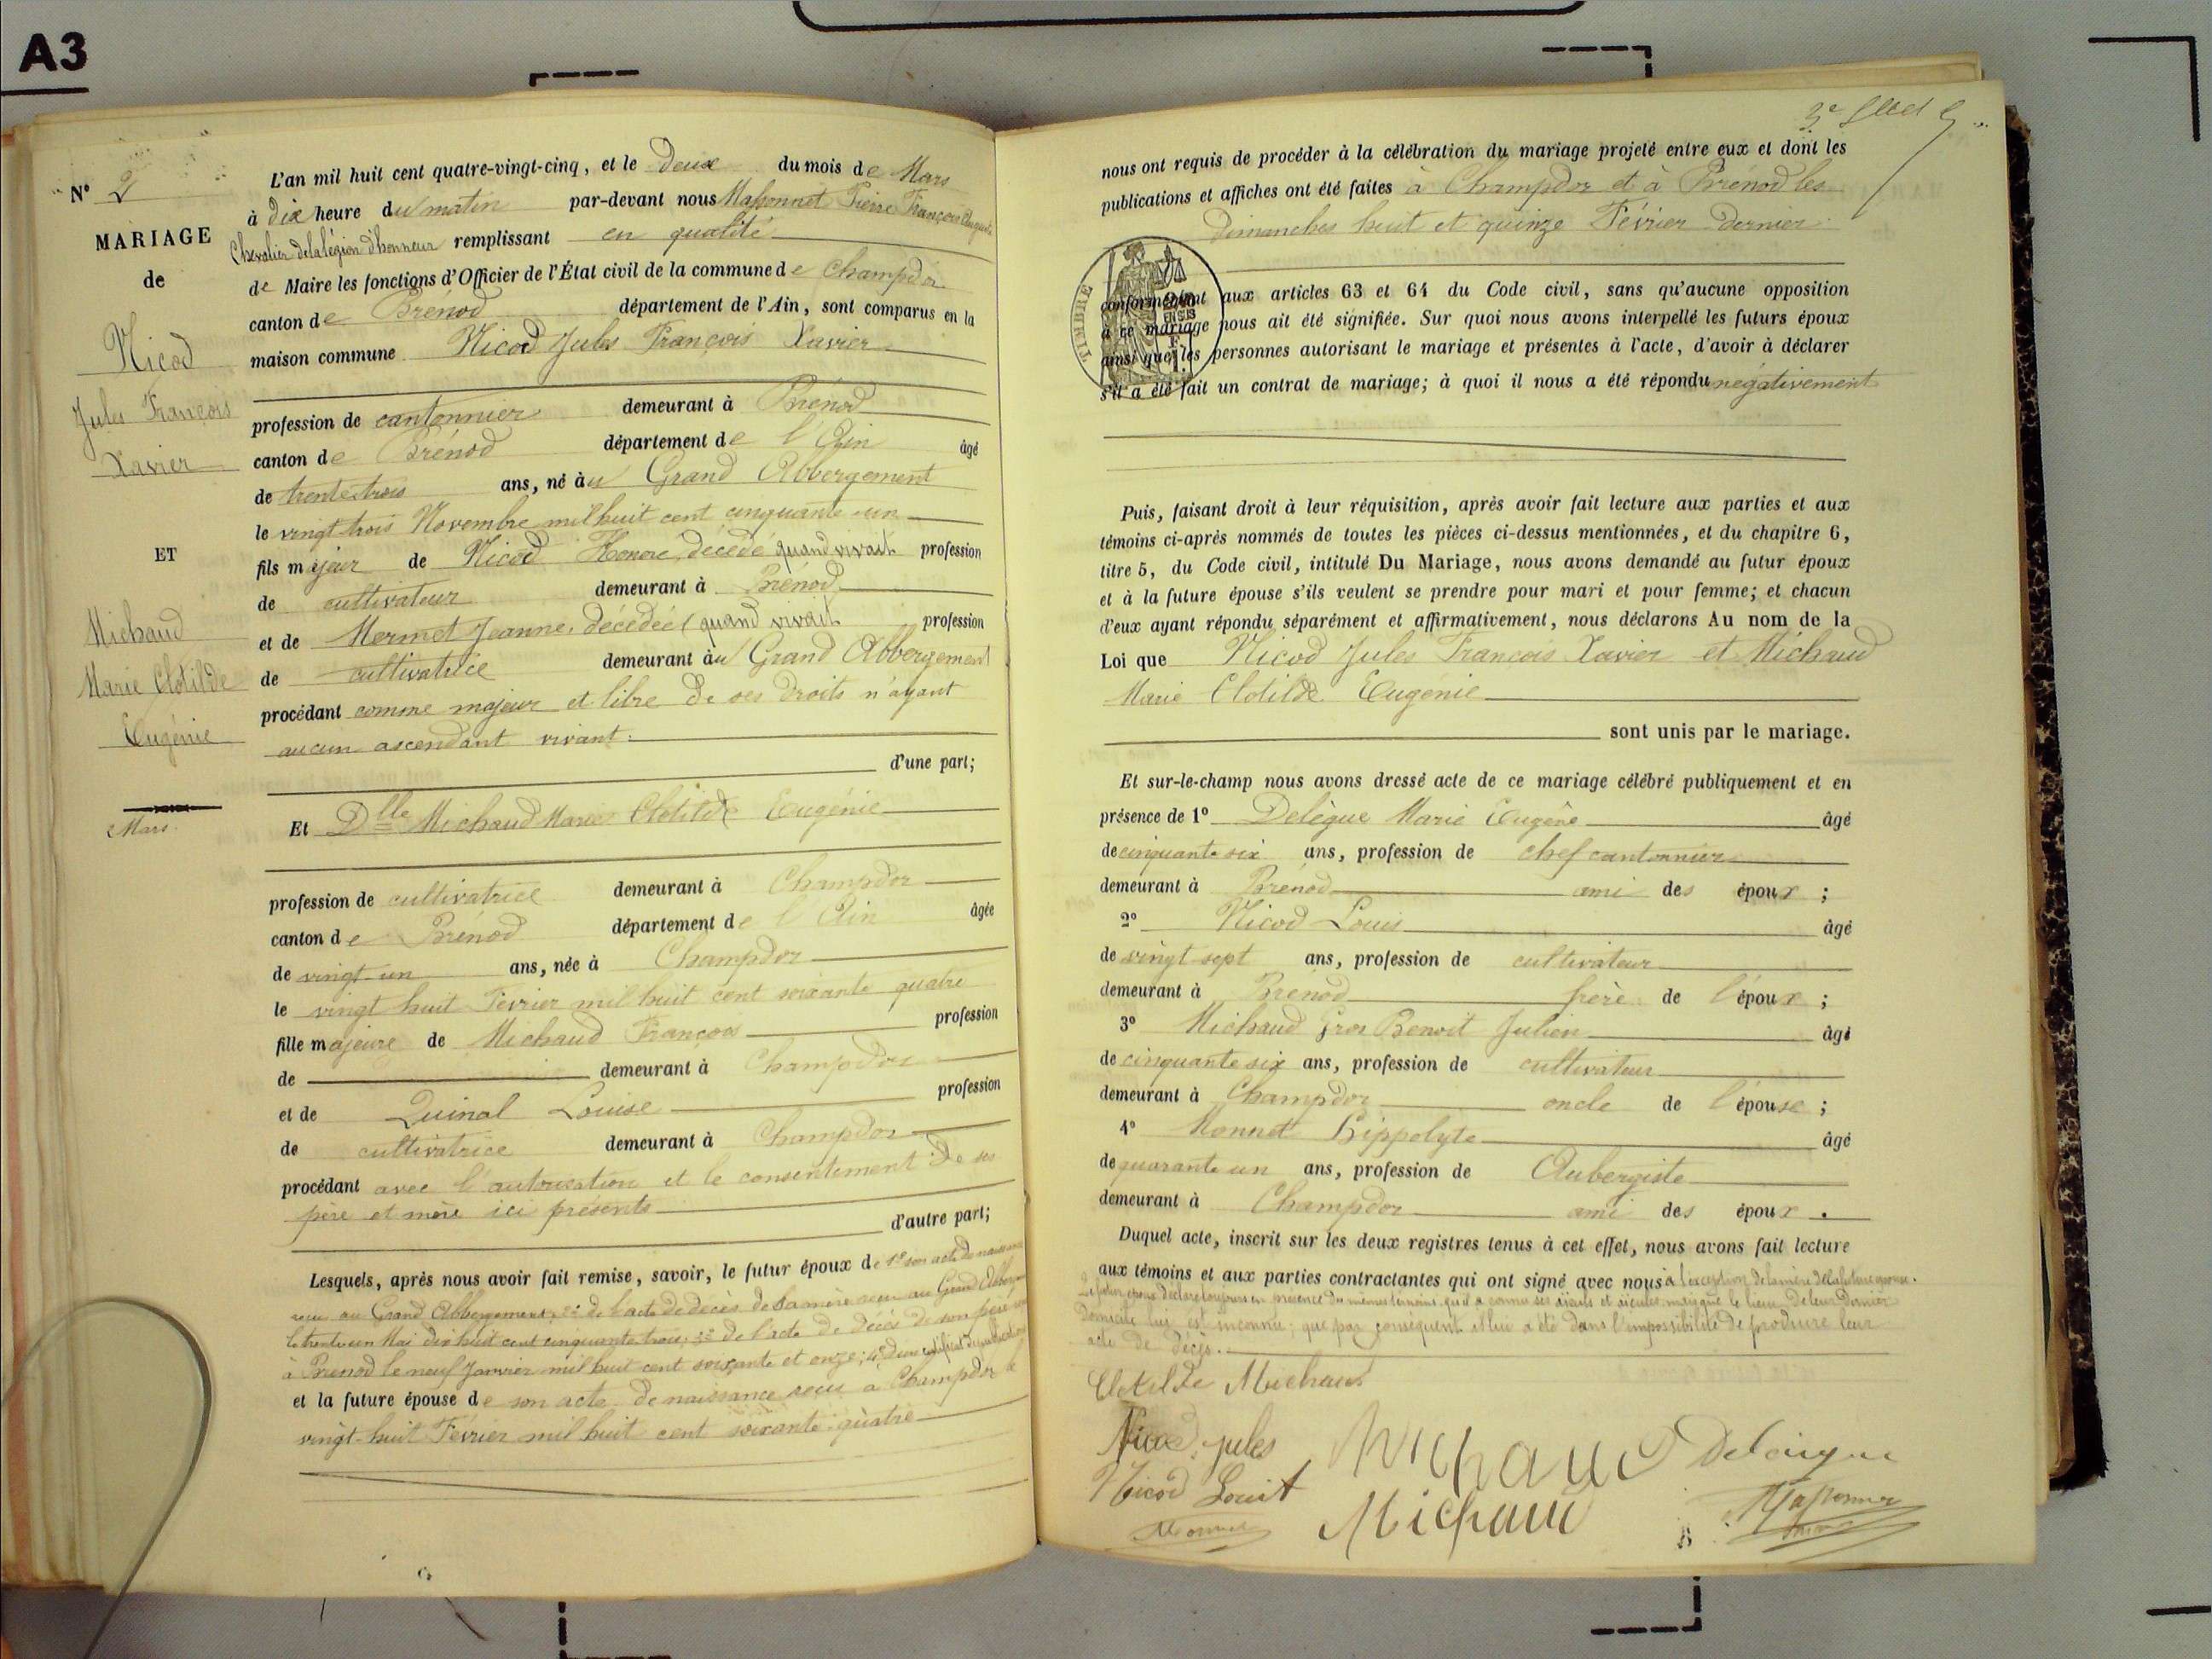 A3
N° 2
MARIAGE
de
Nicod
Jules François
Xavier
ET
Michaud
Marie Clotilde
Eugénie
Mars
L'an mil huit cent quatre-vingt-cinq, et le Deux du mois de Mars
à dix heure du matin par-devant nous Massonnet Pierre François
Chevalier de la légion d'honneur remplissant en qualité
de Maire les fonctions d'Officier de l'État civil de la commune de Champdor
canton de Brénod département de l'Ain, sont comparus en la
maison commune Nicod Jules François Xavier
profession de cantonnier demeurant à Brénod
canton de Brénod département de l'Ain âgé
de trente trois ans, né au Grand Abbergement
le vingt trois Novembre mil huit cent cinquante un
fils majeur de Nicod Honoré, décédé quand vivait profession
de cultivateur demeurant à Brénod
et de Mermet Jeanne, décédée (quand vivait profession
de cultivatrice demeurant au Grand Abbergement
procédant comme majeur et libre de ses droits n'ayant
aucun ascendant vivant.
d'une part;
Et Dlle Michaud Marie Clotilde Eugénie
profession de cultivatrice demeurant à Champdor
canton de Brénod département de l'Ain âgée
de vingt un ans, née à Champdor
le vingt huit Février mil huit cent soixante quatre
fille majeure de Michaud François profession
de demeurant à Champdor
et de Quinal Louise profession
de cultivatrice demeurant à Champdor
procédant avec l'autorisation et le consentement de ses
père et mère ici présents
d'autre part;
Lesquels, après nous avoir fait remise, savoir, le futur époux de 1° son acte de naissance
reçu au Grand Abbergement; 2° de l'acte de décès de sa mère reçu au Grand Abbergement
le trente un Mai dix huit cent cinquante trois; 3° de l'acte de décès de son père
à Brénod le neuf Janvier mil huit cent soixante et onze; 4° d'un certificat de publication
et la future épouse de son acte de naissance reçu à Champdor le
vingt-huit Février mil huit cent soixante-quatre
nous ont requis de procéder à la célébration du mariage projeté entre eux et dont les
publications et affiches ont été faites à Champdor et à Brénod les
Dimanches huit et quinze Février dernier
TIMBRE
conformément aux articles 63 et 64 du Code civil, sans qu'aucune opposition
à ce mariage nous ait été signifiée. Sur quoi nous avons interpellé les futurs époux
ainsi que les personnes autorisant le mariage et présentes à l'acte, d'avoir à déclarer
s'il a été fait un contrat de mariage; à quoi il nous a été répondu négativement
Puis, faisant droit à leur réquisition, après avoir fait lecture aux parties et aux
témoins ci-après nommés de toutes les pièces ci-dessus mentionnées, et du chapitre 6,
titre 5, du Code civil, intitulé Du Mariage, nous avons demandé au futur époux
et à la future épouse s'ils veulent se prendre pour mari et pour femme; et chacun
d'eux ayant répondu séparément et affirmativement, nous déclarons Au nom de la
Loi que Nicod Jules François Xavier et Michaud
Marie Clotilde Eugénie
sont unis par le mariage.
Et sur-le-champ nous avons dressé acte de ce mariage célébré publiquement et en
présence de 1° Delègue Marie Eugène âgé
de cinquante six ans, profession de chef cantonnier
demeurant à Brénod ami des époux ;
2° Nicod Louis âgé
de vingt sept ans, profession de cultivateur
demeurant à Brénod frère de l'époux ;
3° Michaud Gros Benoit Julien âgé
de cinquante six ans, profession de cultivateur
demeurant à Champdor oncle de l'épouse ;
4° Monnet Hippolyte âgé
de quarante un ans, profession de Aubergiste
demeurant à Champdor ami des époux .
Duquel acte, inscrit sur les deux registres tenus à cet effet, nous avons fait lecture
aux témoins et aux parties contractantes qui ont signé avec nous à l'exception de la mère de la future épouse.
Le futur époux déclare toujours en présence des mêmes témoins, qu'il a connu ses aïeuls et aïeules mais que le lieu de leur dernier
domicile lui est inconnu; que par conséquent il lui a été dans l'impossibilité de produire leur
acte de décès.
Clotilde Michaud
Nicod jules Michaud Delaigue
Nicod Louis Michaud Massonnet
Monnet